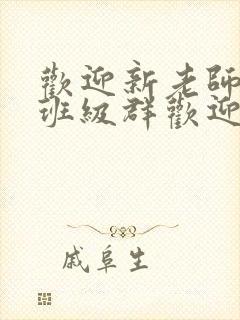 歡迎新老師
班級群歡迎
戚阜生